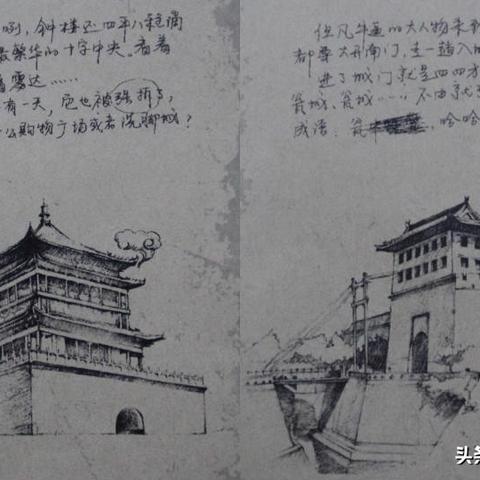 咧，钟楼还四平八稳滴
最繁华的十字中央。看着
雷达……
有一天，它也被强拆了，
么购物广场或者洗脚城？
但凡牛逼的大人物来到
都要大开南门，走一趟入
进了城门就是四四方
瓮城，瓮城……不由
成语：瓮，哈哈
头条